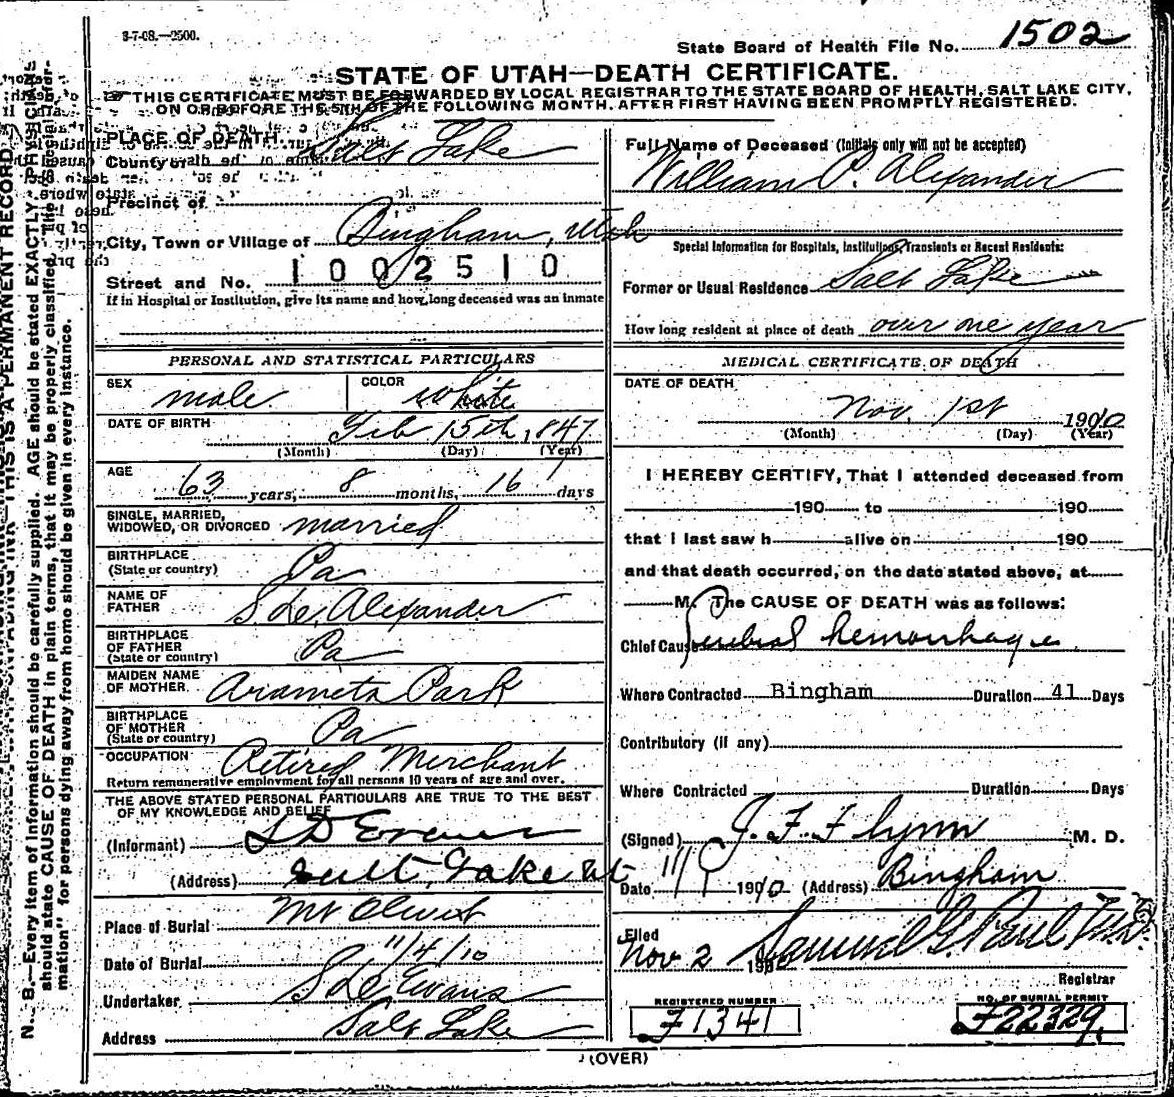 3-7-08.—2500.
State Board of Health File No. 1502
STATE OF UTAH—DEATH CERTIFICATE.
THIS CERTIFICATE MUST BE FORWARDED BY LOCAL REGISTRAR TO THE STATE BOARD OF HEALTH, SALT LAKE CITY,
ON OR BEFORE THE 5TH OF THE FOLLOWING MONTH, AFTER FIRST HAVING BEEN PROMPTLY REGISTERED.
PLACE OF DEATH
County of Salt Lake
Precinct of
City, Town or Village of Bingham, Utah
Street and No. 1002510
if in Hospital or Institution, give its name and how long deceased was an inmate
PERSONAL AND STATISTICAL PARTICULARS
SEX male COLOR white
DATE OF BIRTH Feb 15th, 1847
(Month) (Day) (Year)
AGE 63 years, 8 months, 16 days
SINGLE, MARRIED,
WIDOWED, OR DIVORCED married
BIRTHPLACE
(State or country) Pa
NAME OF
FATHER Alexander
BIRTHPLACE
OF FATHER
(State or country) Pa
MAIDEN NAME
OF MOTHER Arameta Park
BIRTHPLACE
OF MOTHER
(State or country) Pa
OCCUPATION Retired Merchant
Return remunerative employment for all persons 10 years of age and over.
THE ABOVE STATED PERSONAL PARTICULARS ARE TRUE TO THE BEST
OF MY KNOWLEDGE AND BELIEF
(Informant) S D Evans
(Address) Salt Lake Ut
Place of Burial Mt Olivet
Date of Burial 11/4/10
Undertaker Evans
Address Salt Lake
Full Name of Deceased (Initials only will not be accepted)
William P. Alexander
Special Information for Hospitals, Institutions, Transients or Recent Residents:
Former or Usual Residence Salt Lake
How long resident at place of death over one year
MEDICAL CERTIFICATE OF DEATH
DATE OF DEATH
Nov. 1st 1910
(Month) (Day) (Year)
I HEREBY CERTIFY, That I attended deceased from
190 to 190
that I last saw h alive on 190
and that death occurred, on the date stated above, at
M. The CAUSE OF DEATH was as follows:
Chief Cause Cerebral hemorrhage
Where Contracted Bingham Duration 41 Days
Contributory (if any)
Where Contracted Duration Days
(Signed) J. F. Flynn M. D.
Date 11/1 1910 (Address) Bingham
Filed
Nov 2 190 Samuel G. Paul
Registrar
REGISTERED NUMBER
F1341
NO. OF BURIAL PERMIT
F22329
(OVER)
THIS IS A PERMANENT RECORD
N. B.—Every item of information should be carefully supplied. AGE should be stated EXACTLY.
should state CAUSE OF DEATH in plain terms, that it may be properly classified. The
mation" for persons dying away from home should be given in every instance.